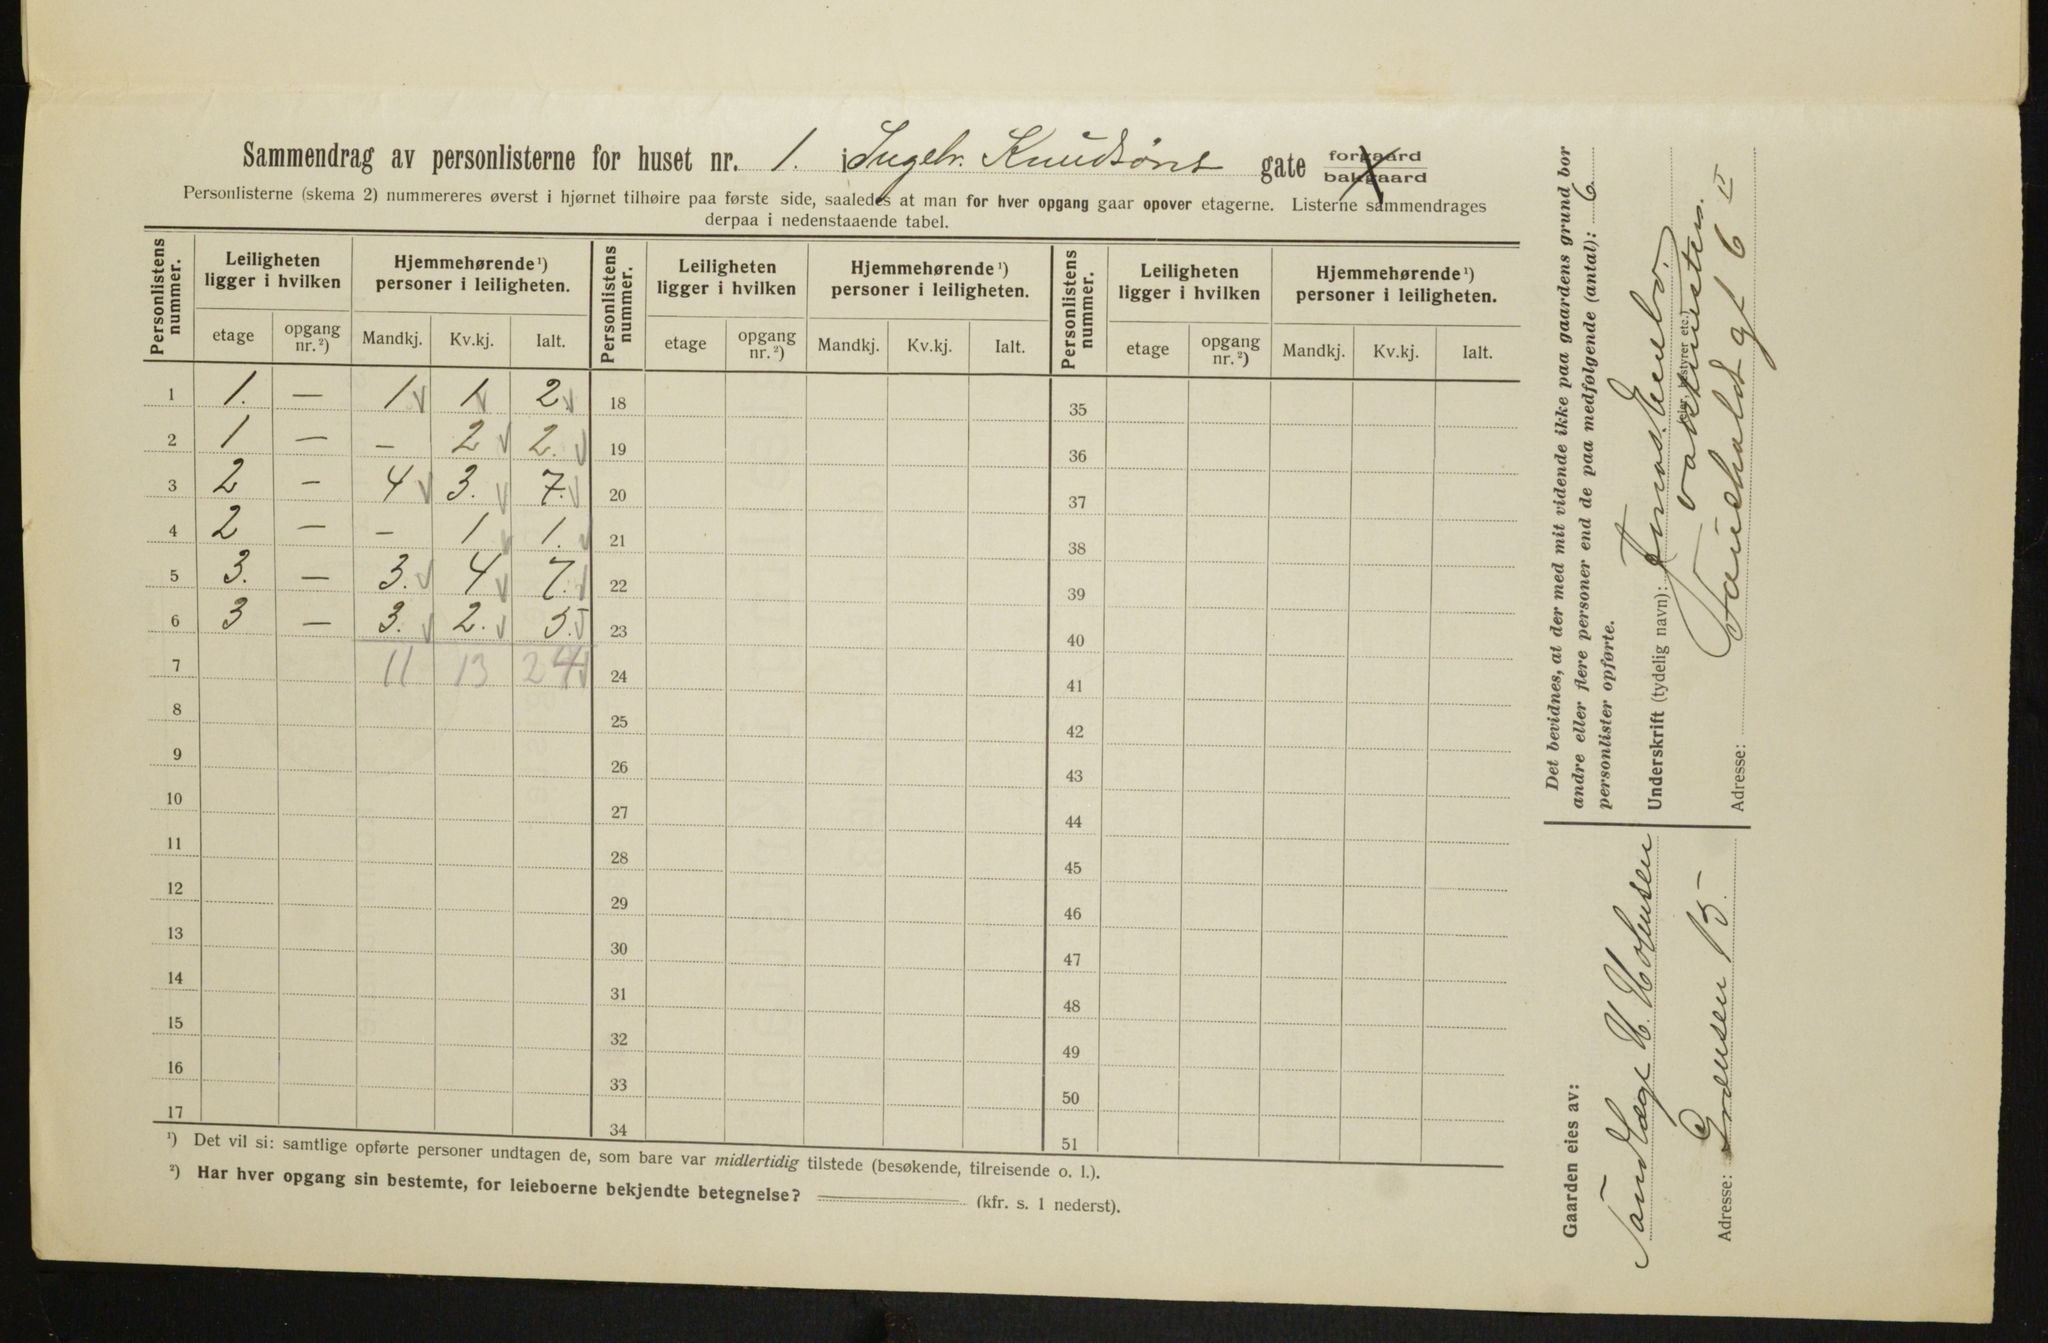 Sammendrag av personlisterne for huset nr. 1. i Ingebr. Knudsøns gate forgaard bakgaard
Personlisterne (skema 2) nummereres øverst i hjørnet tilhøire paa første side, saaledes at man for hver opgang gaar opover etagerne. Listerne sammendrages
derpaa i nedenstaaende tabel.
Personlistens nummer. Leiligheten ligger i hvilken Hjemmehørende ¹) personer i leiligheten. Personlistens nummer. Leiligheten ligger i hvilken Hjemmehørende ¹) personer i leiligheten. Personlistens nummer. Leiligheten ligger i hvilken Hjemmehørende ¹) personer i leiligheten.
etage opgang nr. ²) Mandkj. Kv.kj. Ialt. etage opgang nr. ²) Mandkj. Kv.kj. Ialt. etage opgang nr. ²) Mandkj. Kv.kj. Ialt.
1 1. — 1 1 2 18 35
2 1 — – 2 2. 19 36
3 2 — 4 3. 7. 20 37
4 2 — – 1 1. 21 38
5 3. — 3. 4 7. 22 39
6 3 — 3. 2. 5. 23 40
7 11 13 24 24 41
8 25 42
9 26 43
10 27 44
11 28 45
12 29 46
13 30 47
14 31 48
15 32 49
16 33 50
17 34 51
¹) Det vil si: samtlige opførte personer undtagen de, som bare var midlertidig tilstede (besøkende, tilreisende o. l.).
²) Har hver opgang sin bestemte, for leieboerne bekjendte betegnelse? (kfr. s. 1 nederst).
Det bevidnes, at der med mit vidende ikke paa gaardens grund bor
andre eller flere personer end de paa medfølgende (antal): 6
personlister opførte.
Underskrift (tydelig navn):
(eier, bestyrer etc.)
Adresse: 6 II
Gaarden eies av:
Tandlæge H. Holmsen
Adresse: Grænsen 15.-